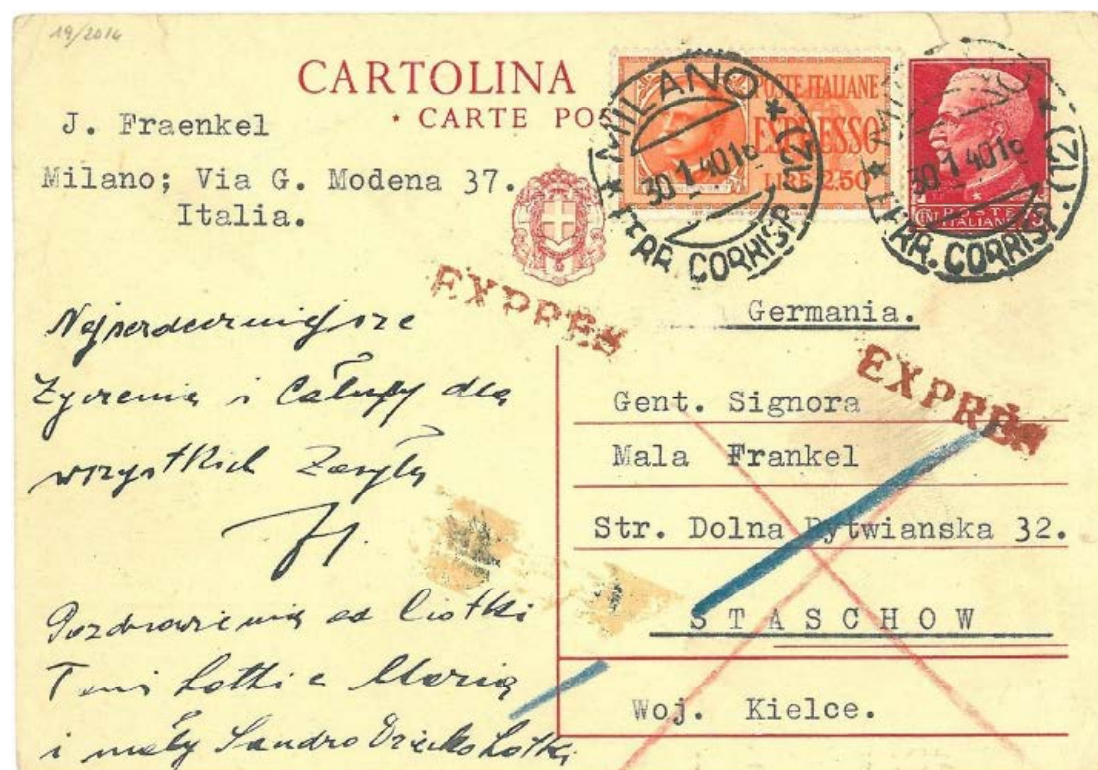 19/2014
CARTOLINA
CARTE POS
J. Fraenkel
Milano; Via G. Modena 37.
Italia.
POSTE ITALIANE
ESPRESSO
LIRE 2.50
MILANO
30 1 40 18
FERR. CORRISP. (12)
30 1 40 18
FERR. CORRISP. (12)
POSTE
ITALIANE
EXPRES
EXPRES
Germania.
Gent. Signora
Mala Frankel
Str. Dolna Rytwianska 32.
STASCHOW
Woj. Kielce.
Najserdeczniejsze
Życzenia i Całusy dla
wszystkich Zasyła
Pozdrowienia od Ciotki
Toni Lotki e Maria
i mały Sandro Dziecko Lotki